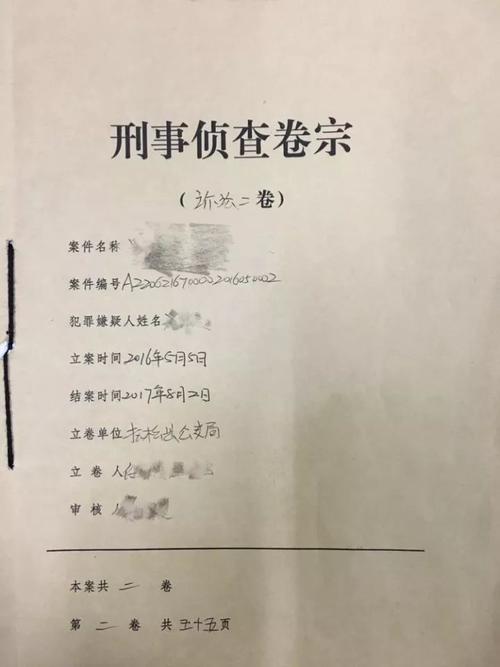 刑事侦查卷宗
（诉讼二卷）
案件名称
案件编号A2206216700002016050002
犯罪嫌疑人姓名
立案时间2016年5月5日
结案时间2017年8月2日
立卷单位抚松县公安局
立卷人
审核人
本案共二卷
第二卷共五十五页